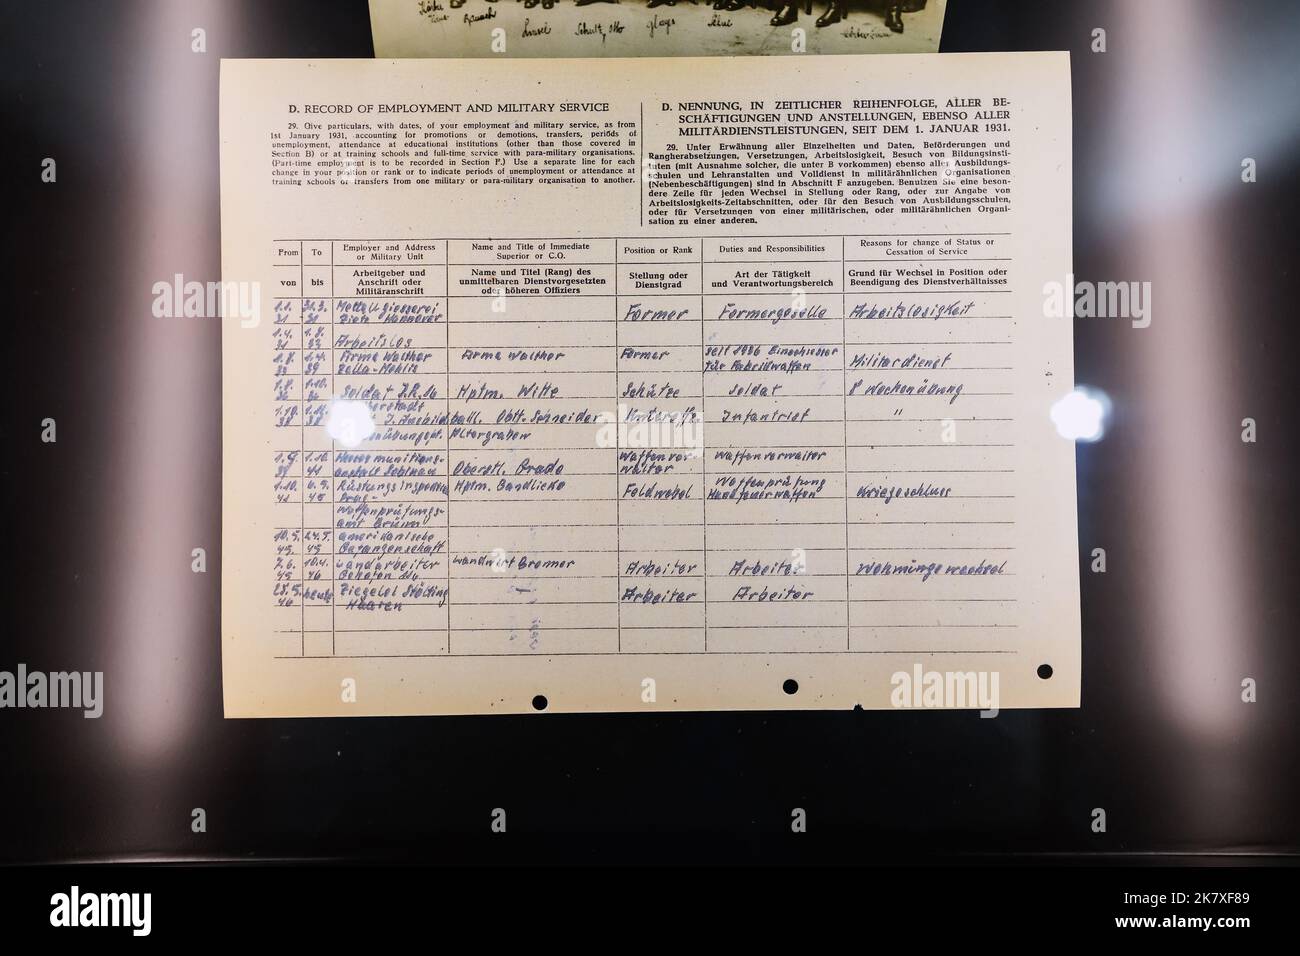 Insel Schultz, Otto
D. RECORD OF EMPLOYMENT AND MILITARY SERVICE
29. Give particulars, with dates, of your employment and military service, as from
1st January 1931, accounting for promotions or demotions, transfers, periods of
unemployment, attendance at educational institutions (other than those covered in
Section B) or at training schools and full-time service with para-military organisations.
(Part-time employment is to be recorded in Section F.) Use a separate line for each
change in your position or rank or to indicate periods of unemployment or attendance at
training schools or transfers from one military or para-military organisation to another.
D. NENNUNG, IN ZEITLICHER REIHENFOLGE, ALLER BE-
SCHÄFTIGUNGEN UND ANSTELLUNGEN, EBENSO ALLER
MILITÄRDIENSTLEISTUNGEN, SEIT DEM 1. JANUAR 1931.
29. Unter Erwähnung aller Einzelheiten und Daten, Beförderungen und
Rangherabsetzungen, Versetzungen, Arbeitslosigkeit, Besuch von Bildungsinsti-
tuten (mit Ausnahme solcher, die unter B vorkommen) ebenso aller Ausbildungs-
schulen und Lehranstalten und Volldienst in militärähnlichen Organisationen
(Nebenbeschäftigungen) sind in Abschnitt F anzugeben. Benutzen Sie eine beson-
dere Zeile für jeden Wechsel in Stellung oder Rang, oder zur Angabe von
Arbeitslosigkeits-Zeitabschnitten, oder für den Besuch von Ausbildungsschulen,
oder für Versetzungen von einer militärischen, oder militärähnlichen Organi-
sation zu einer anderen.
From To Employer and Address or Military Unit Name and Title of Immediate Superior or C.O. Position or Rank Duties and Responsibilities Reasons for change of Status or Cessation of Service
von bis Arbeitgeber und Anschrift oder Militäranschrift Name und Titel (Rang) des unmittelbaren Dienstvorgesetzten oder höheren Offiziers Stellung oder Dienstgrad Art der Tätigkeit und Verantwortungsbereich Grund für Wechsel in Position oder Beendigung des Dienstverhältnisses
1.1. 31.3. Metallgiesserei
31 31 Dietz Hannover Former Formergeselle Arbeitslosigkeit
1.4. 1.8.
31 33 Arbeitslos
1.8. 1.4. Firma Walther Firma Walther Former seit 1936 Einschiesser
33 39 Zella-Mehlis für Fabrikwaffen Militärdienst
1.8. 1.10.
36 36 Soldat J.R. Hptm. Witte Schütze Soldat 8 Wochenübung
1.10. Obtl. Schneider Unteroffz. Infantrist "
Altergraben
1.9. 1.10. Heeresmunitions- Waffenver- Waffenverwalter
39 41 anstalt Oberstl. Brade walter
1.10. 6.5. Rüstungsinspection Hptm. Feldwebel Waffenprüfung Kriegsschluss
41 45 Prag- Handfeuerwaffen
Waffenprüfungs-
amt Brünn
10.5. 24.5. amerikanische
45 45 Gefangenschaft
2.6. 10.4. Landarbeiter Landwirt Bremer Arbeiter Arbeiter Wohnungswechsel
45 46
25.5. heute Ziegelei Stölting Arbeiter Arbeiter
46 Haaren
alamy
Image ID: 2K7XF89
www.alamy.com